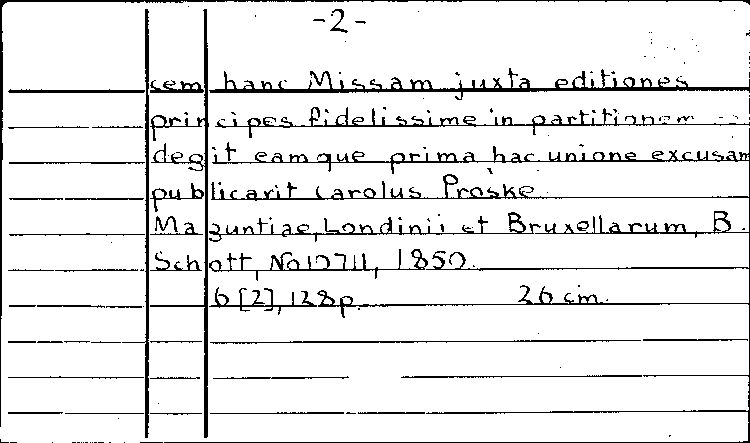 -2-
cem hanc Missam juxta editiones
principes fidelissime in partitionem
degit eamque prima hac unione excusam
publicarit Carolus Proske
Maguntiae, Londinii et Bruxellarum, B.
Schott, No 10711, 1850.
6 [2], 128p. 26 cm.